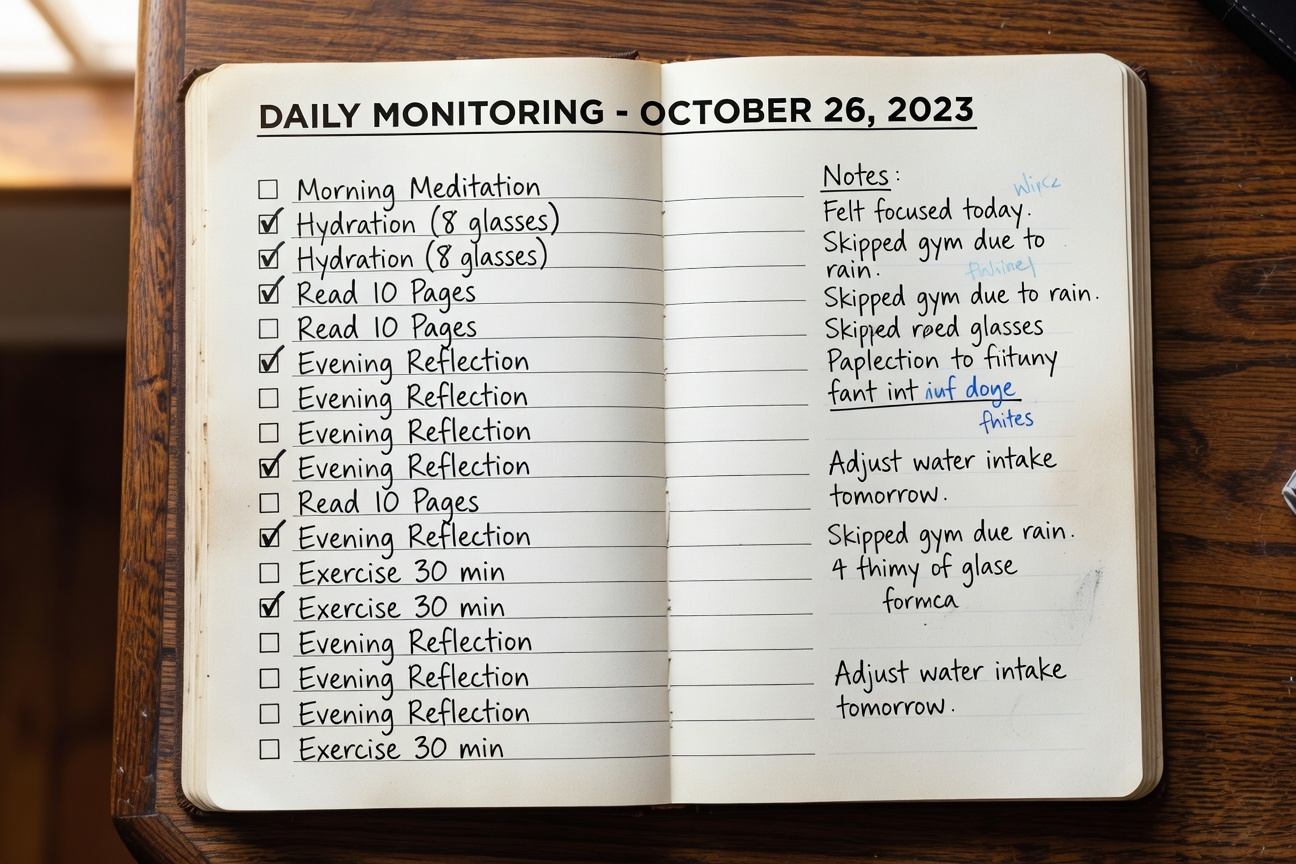 DAILY MONITORING - OCTOBER 26, 2023
Morning Meditation
Hydration (8 glasses)
Hydration (8 glasses)
Read 10 Pages
Read 10 Pages
Evening Reflection
Evening Reflection
Evening Reflection
Evening Reflection
Read 10 Pages
Evening Reflection
Exercise 30 min
Exercise 30 min
Evening Reflection
Evening Reflection
Evening Reflection
Exercise 30 min
Notes:
Felt focused today.
Skipped gym due to
rain.
Skipped gym due to rain.
glasses
Paplection to
fant int
Adjust water intake
tomorrow.
Skipped gym due rain.
4 fhimy of glase
formca
Adjust water intake
tomorrow.